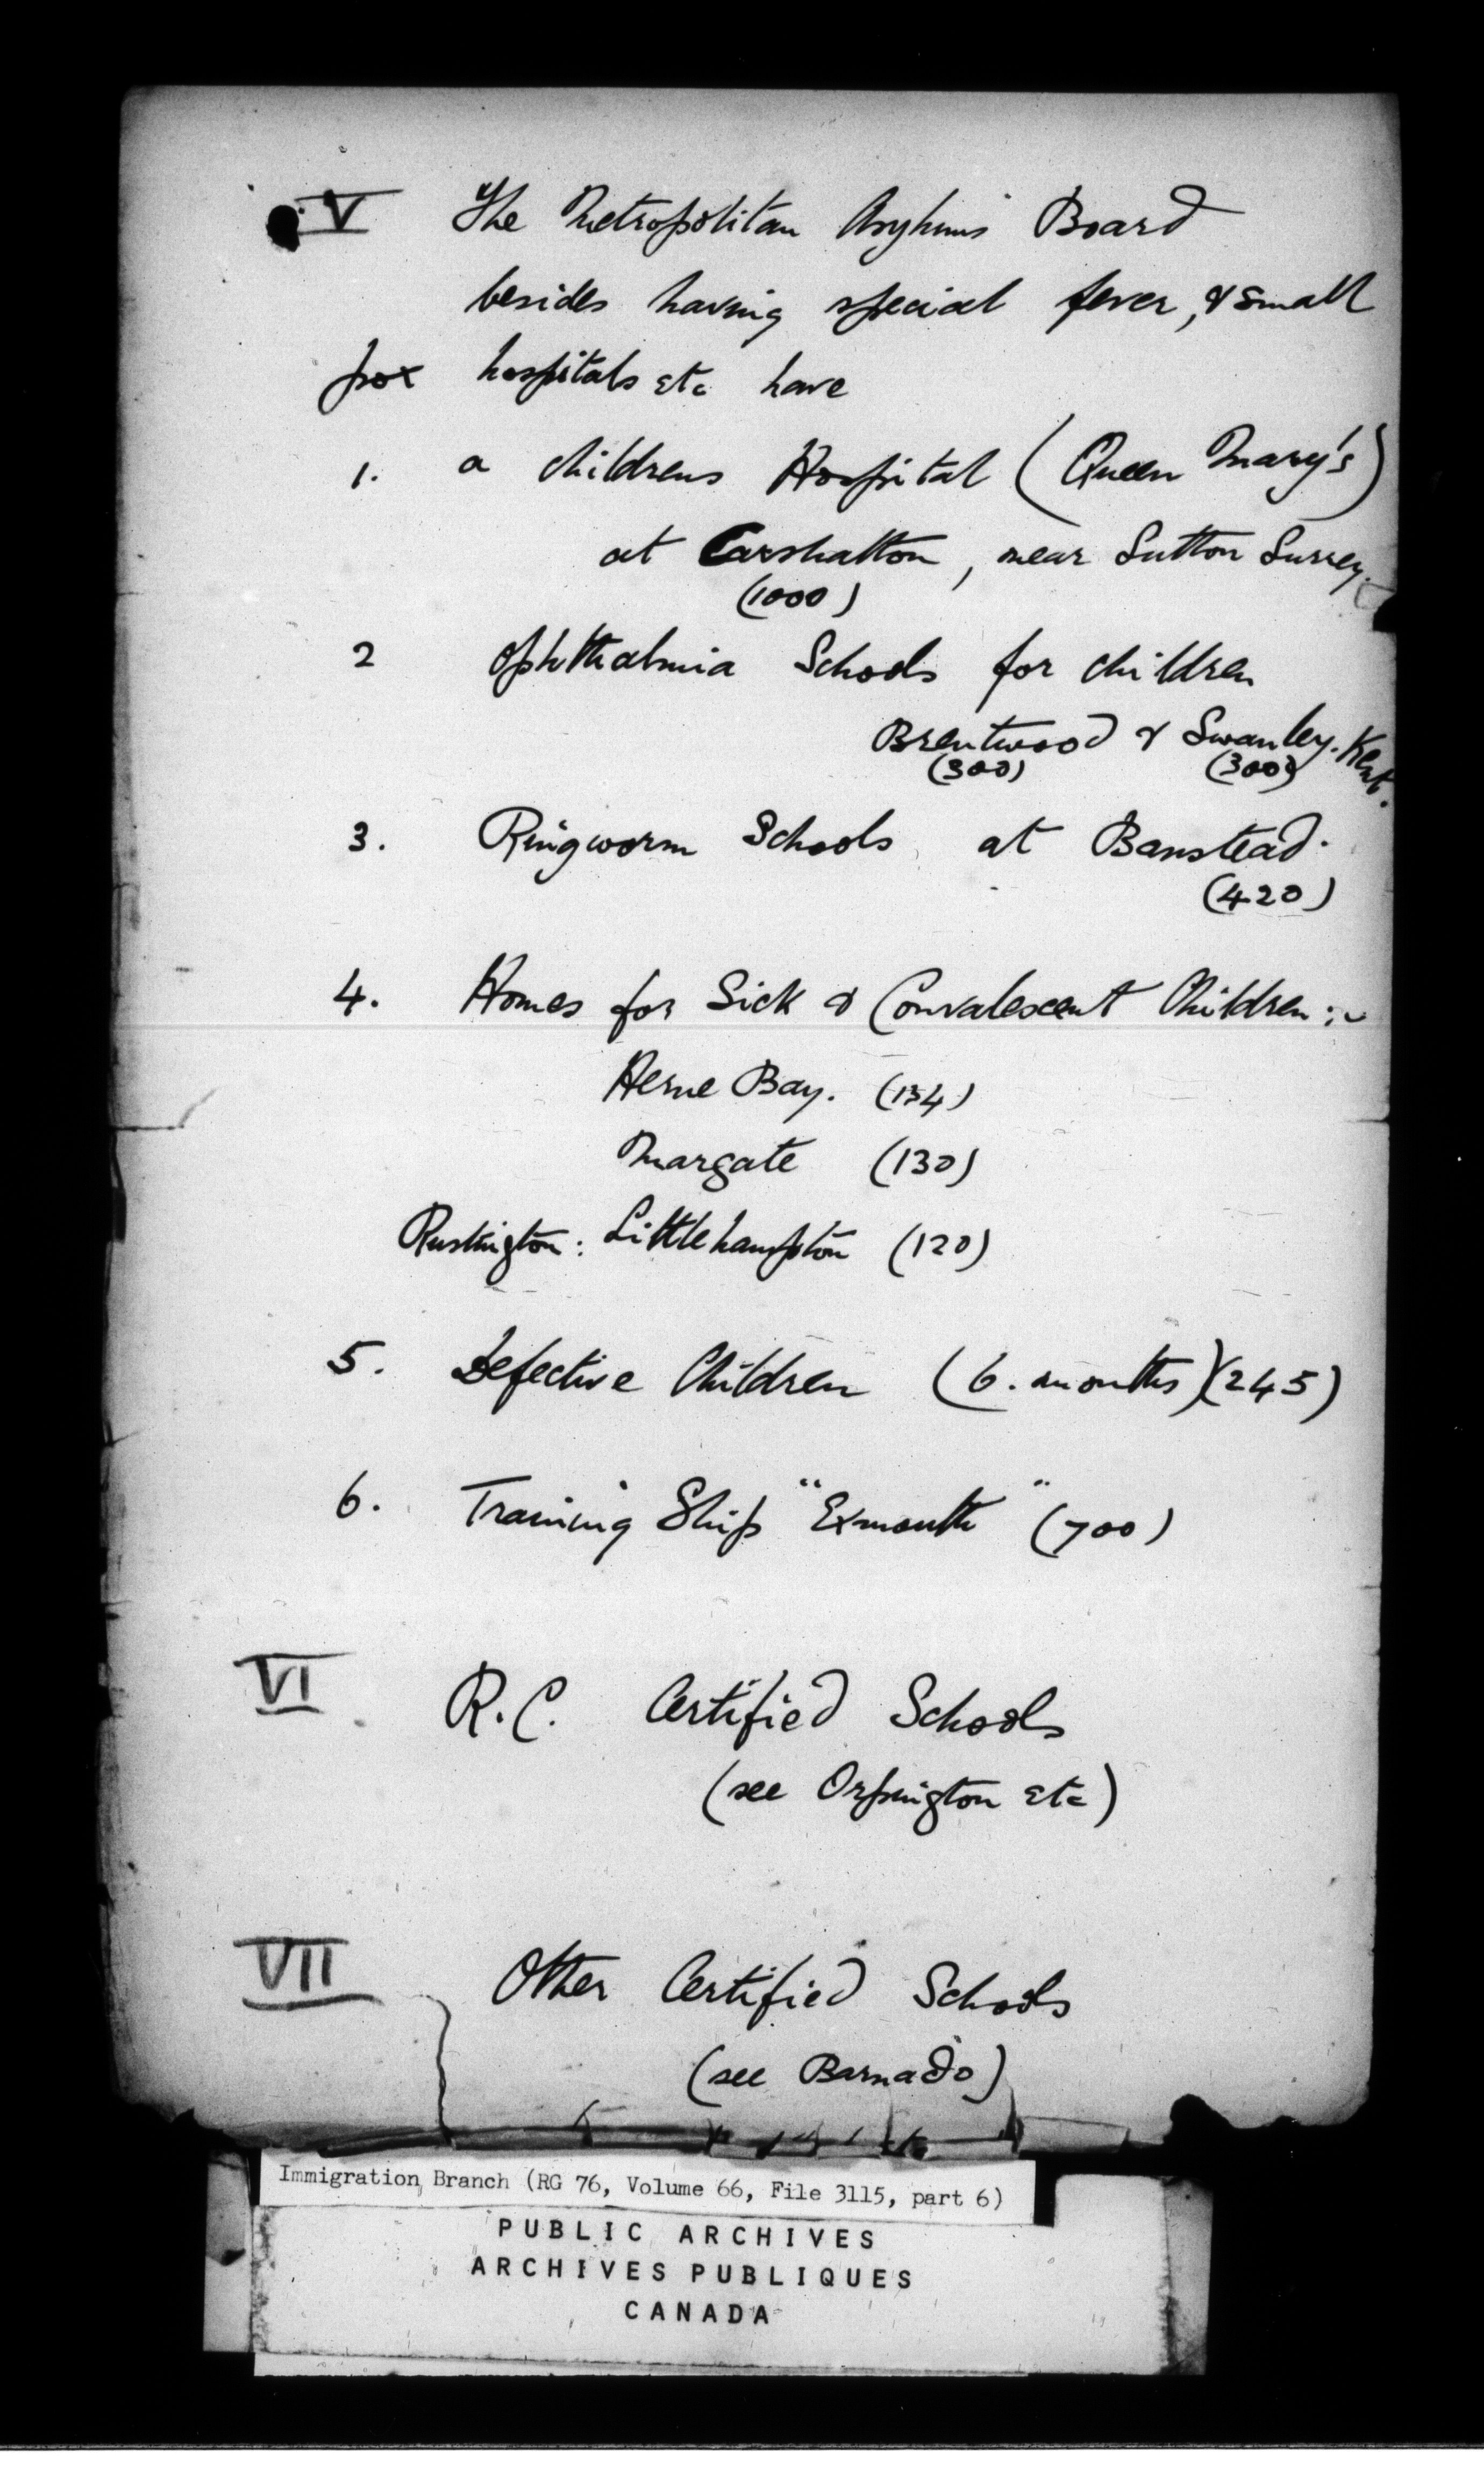 V The Metropolitan Asylums Board
besides having special fever, & small
pox hospitals etc have
1. a childrens Hospital (Queen Mary's)
at Carshalton, near Sutton Surrey.
(1000)
2 Ophthalmia Schools for children
Brentwood & Swanley. Kent.
(300) (300)
3. Ringworm Schools at Banstead.
(420)
4. Homes for Sick & Convalescent Children :-
Herne Bay. (134)
Margate (130)
Rustington : Littlehampton (120)
5. Defective Children (6. months) (245)
6. Training Ship "Exmouth" (700)
VI R.C. Certified Schools
(see Orpington etc)
VII Other Certified Schools
(see Barnado)
Immigration Branch (RG 76, Volume 66, File 3115, part 6)
PUBLIC ARCHIVES
ARCHIVES PUBLIQUES
CANADA